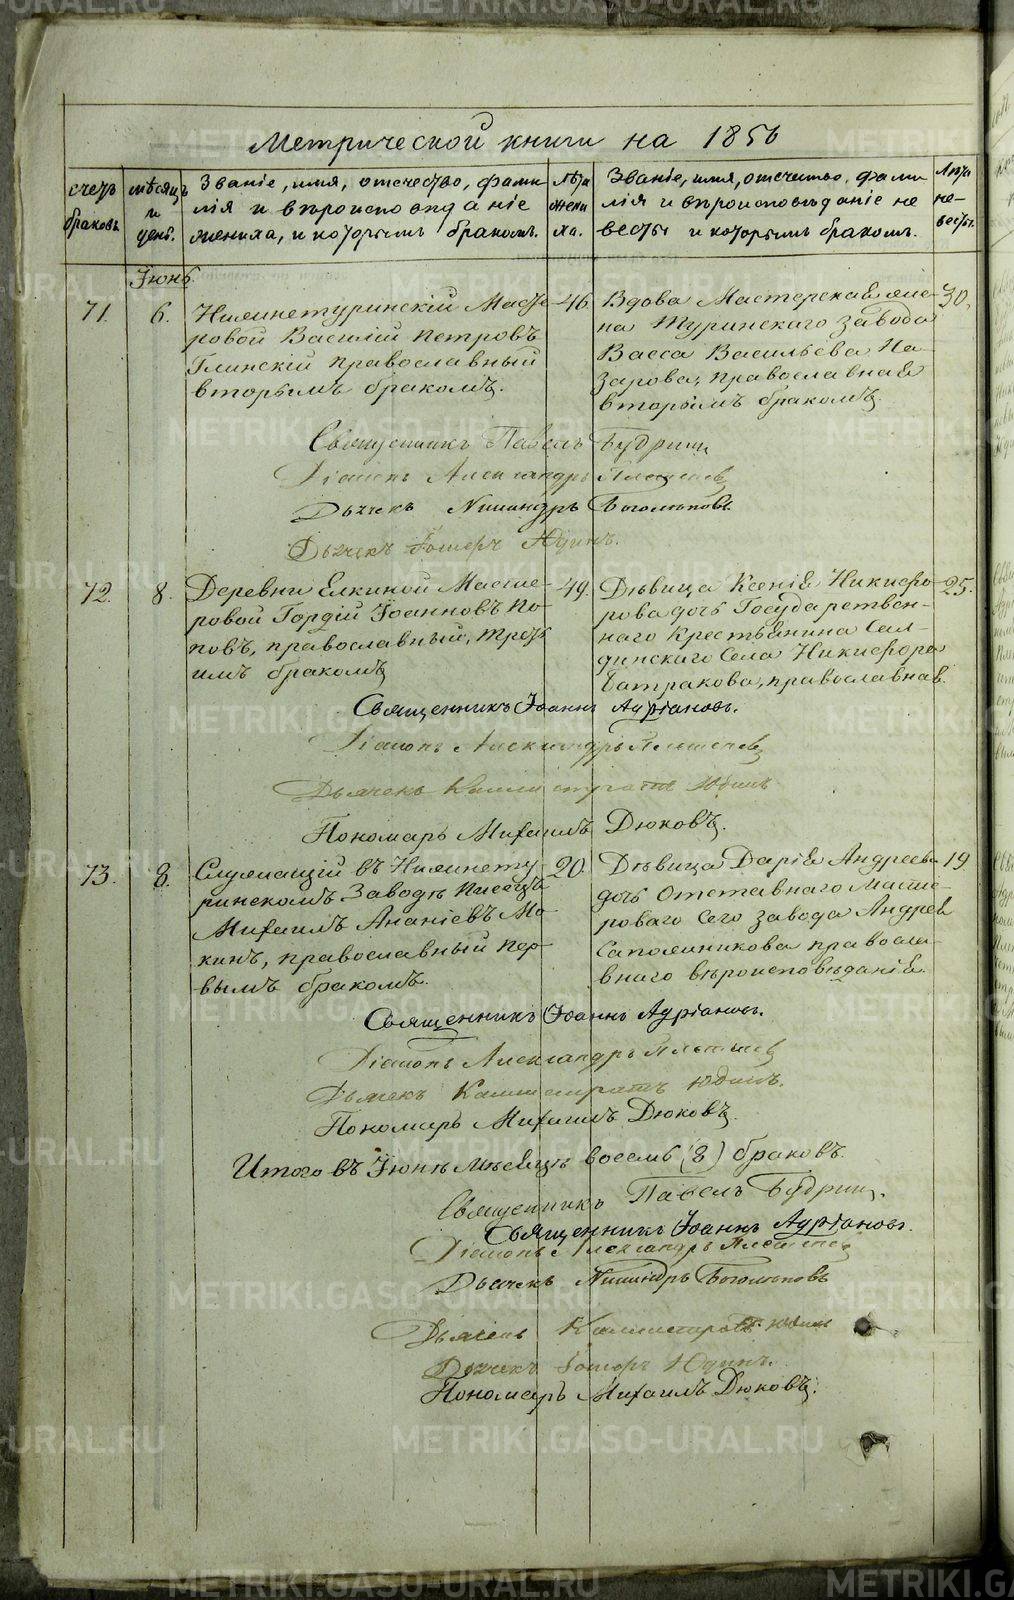 Метрической книги на 1856
счетъ браковъ.
мѣсяцъ и день.
Званіе, имя, отечество, фами-
лія и вѣроисповѣданіе
жениха, и которымъ бракомъ.
Лѣта жени-
ха.
Званіе, имя, отечество, фами-
лія и вѣроисповѣданіе не
весты и которымъ бракомъ.
Лѣта не-
весты.
Іюнь
71. 6. Нижнетуринскій Масте-
ровой Василій Петровъ
Глинскій православный
вторымъ бракомъ.
46.
Вдова Мастерская же-
на Туринскаго завода
Васса Васильева На-
зарова, православная
вторымъ бракомъ.
30.
Священникъ Павелъ Будрин
Діаконъ Александръ Плетнев
Дьячекъ Никандръ Боголюповъ.
Дьячекъ Юдинъ.
72. 8. Деревни Елкиной Масте-
ровой Гордій Іоанновъ По-
повъ, православный, треть
имъ бракомъ
49.
Дѣвица Ксенія Никифо-
рова дочь Государствен-
наго Крестьянина Сал-
динскаго Села Никифора
Батракова, православная.
25.
Священникъ Іоаннъ Адріановъ.
Діаконъ Александръ Плетнев
Дьячекъ Каллистратъ Юдинъ
Пономарь Михаилъ Дюковъ.
73. 8. Служащій въ Нижнету-
ринскомъ Заводѣ Писецъ
Михаилъ Ананіевъ Мо-
кинъ, православный пер-
вымъ бракомъ.
20.
Дѣвица Дарія Андреева
дочь Отставнаго Масте-
роваго сего завода Андрея
Сапожникова правосла-
внаго вѣроисповѣданія.
19
Священникъ Іоаннъ Адріановъ.
Діаконъ Александръ Плетнев
Дьячекъ Каллистратъ Юдинъ.
Пономарь Михаилъ Дюковъ.
Итого въ Іюнѣ Мѣсяцѣ восемь (8) браковъ.
Священникъ Павелъ Будрин.
Священникъ Іоаннъ Адріановъ.
Діаконъ Александръ Плетнев
Дьячекъ Никандръ Боголюповъ
Дьячекъ Каллистратъ Юдинъ
Дьячекъ Юдинъ.
Пономарь Михаилъ Дюковъ.
METRIKI.GASO-URAL.RU